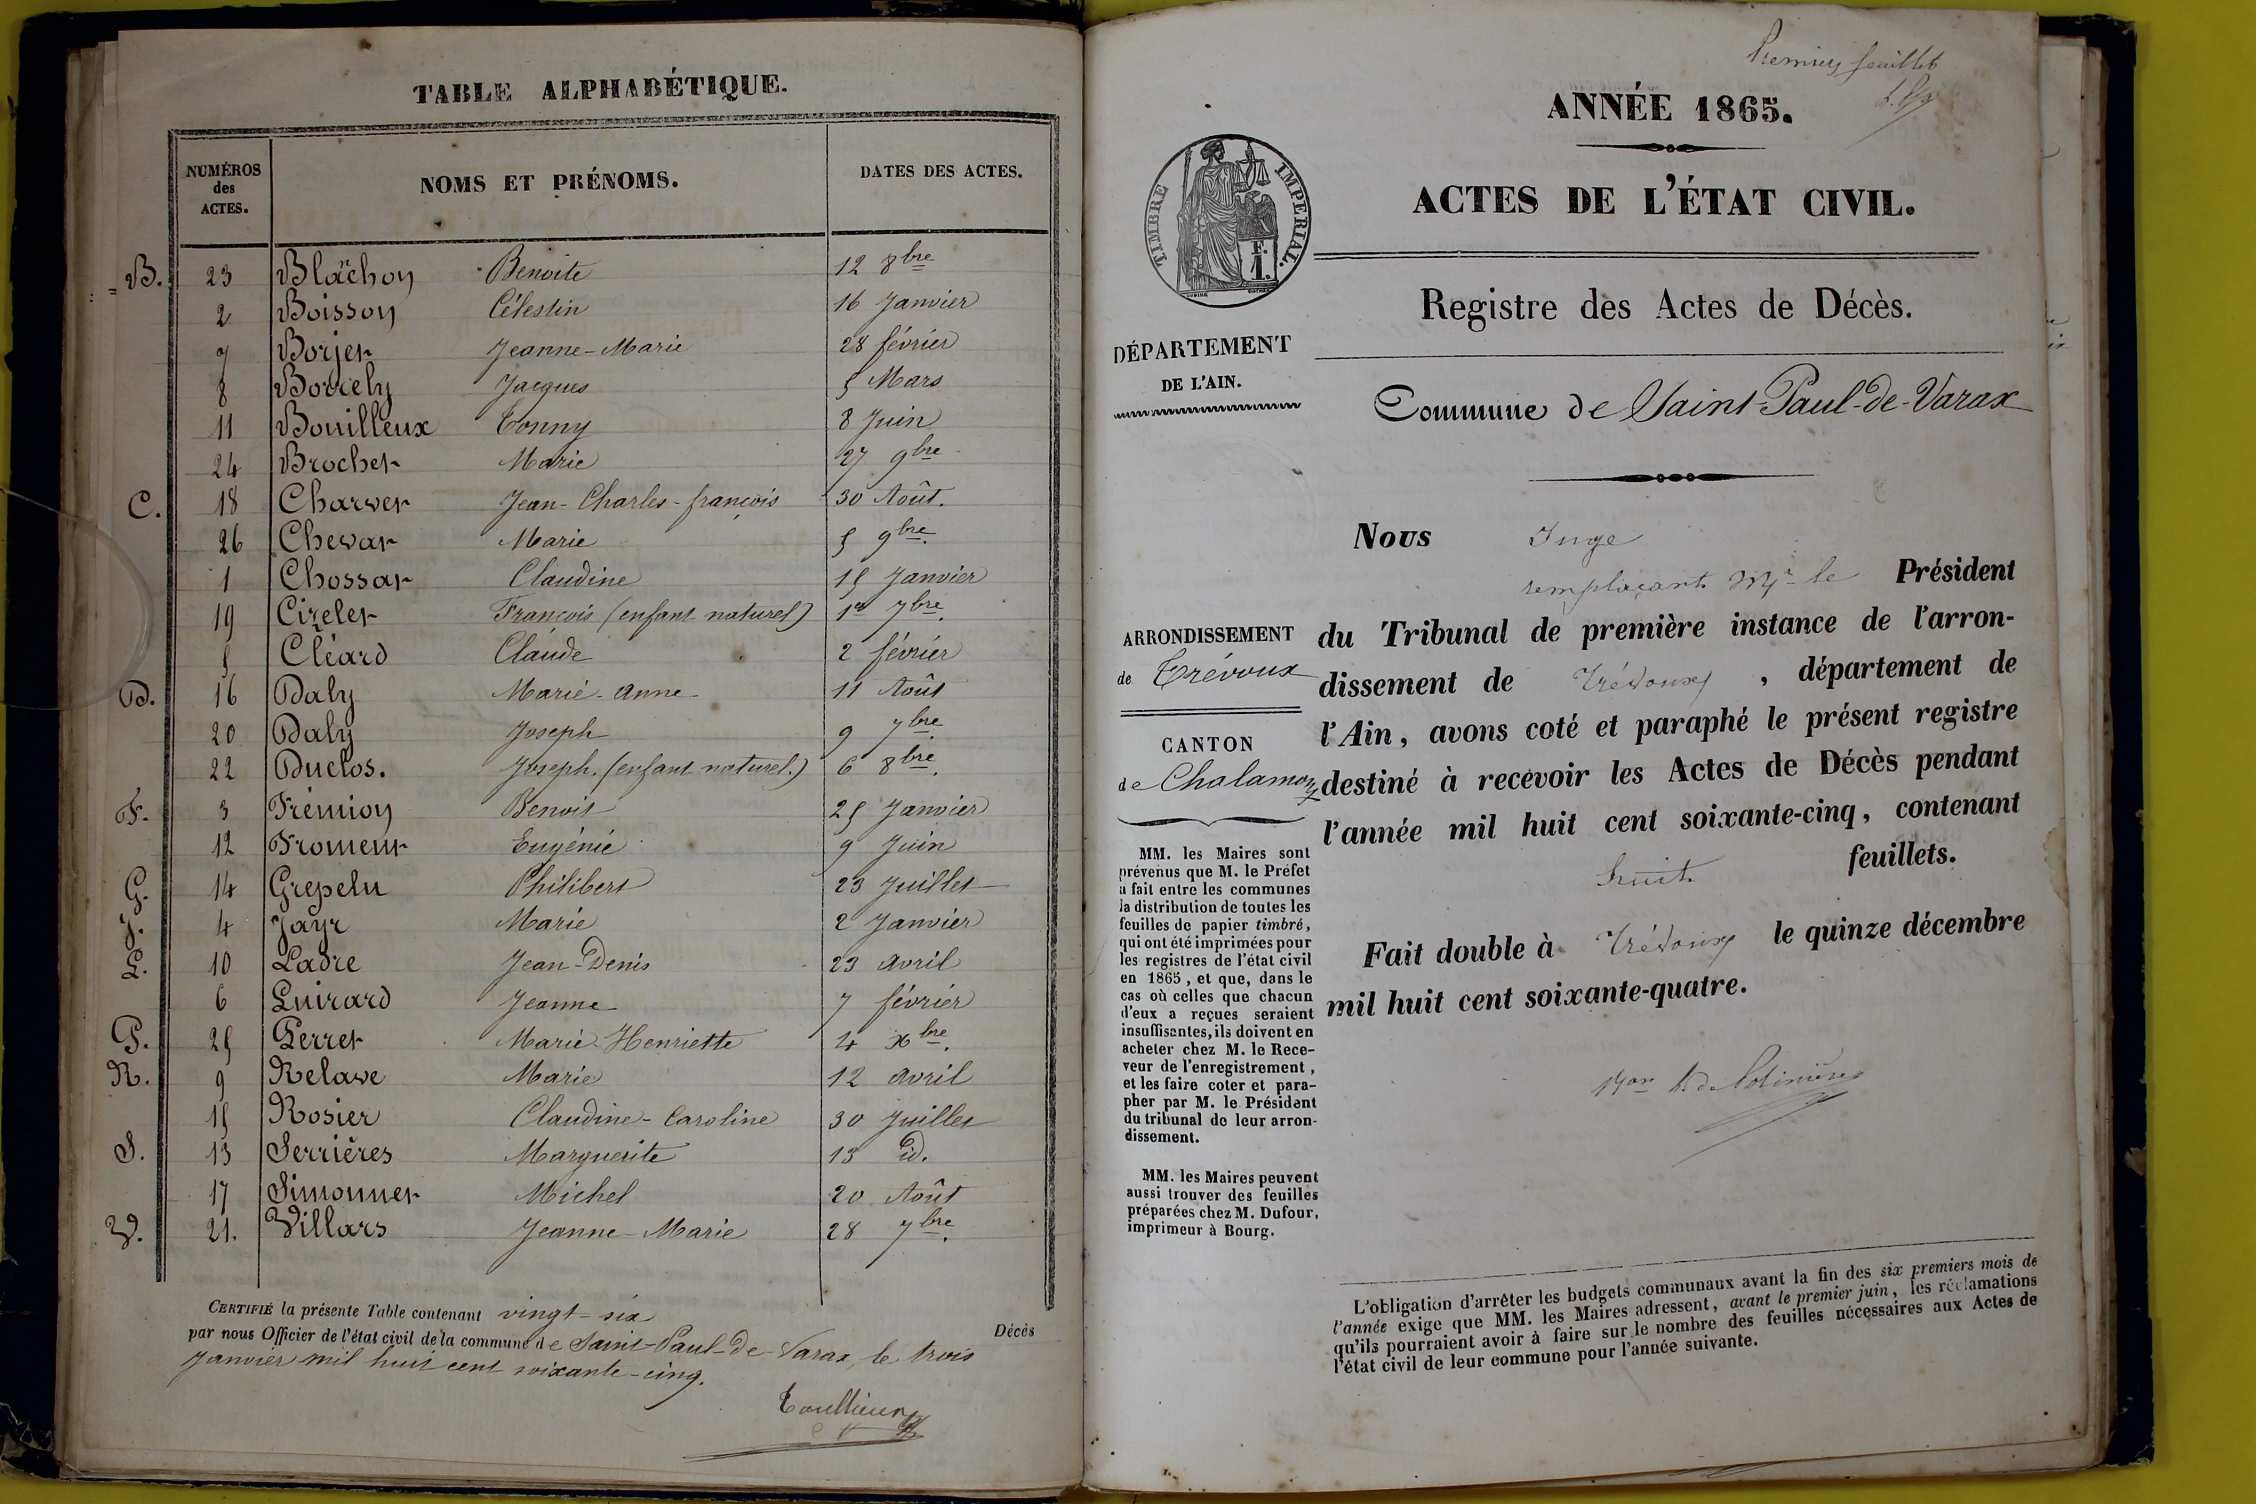 TABLE ALPHABÉTIQUE.
NUMÉROS des ACTES. NOMS ET PRÉNOMS. DATES DES ACTES.
B. 23 Blachon Benoite 12 8bre
2 Boisson Célestin 16 Janvier
7 Borjet Jeanne-Marie 28 février
8 Jacques 5 Mars
11 Bouilleux Tonny 8 Juin
24 Brochet Marie 27 9bre
C. 18 Charvet Jean-Charles-françois 30 Août.
26 Chevat Marie 5 9bre.
1 Chossat Claudine 15 Janvier
19 Cizelet François (enfant naturel) 1er 7bre.
5 Cléard Claude 2 février
D. 16 Daly Marie-Anne 11 Août
20 Daly Joseph 9 7bre.
22 Duclos. Joseph. (enfant naturel.) 6 8bre.
F. 3 Frémion Benoit 25 Janvier
12 Froment Eugénie 9 Juin
G. 14 Grepelu Philibert 23 Juillet
J. 4 Jayr Marie 2 Janvier
L. 10 Ladre Jean-Denis 23 avril
6 Luirard Jeanne 7 février
P. 25 Perret Marie-Henriette 4 Xbre.
R. 9 Relave Marie 12 avril
15 Rosier Claudine-Caroline 30 Juillet
S. 13 Serrières Marguerite 13 id.
17 Simonnet Michel 20 Août
V. 21. Villars Jeanne-Marie 28 7bre.
CERTIFIÉ la présente Table contenant vingt-six Décès
par nous Officier de l'état civil de la commune de Saint-Paul-de-Varax, le trois
Janvier mil huit cent soixante-cinq.
Premier feuillet
ANNÉE 1865.
TIMBRE IMPERIAL.
F.
1.
ACTES DE L'ÉTAT CIVIL.
Registre des Actes de Décès.
DÉPARTEMENT
DE L'AIN.
Commune de Saint-Paul-de-Varax
Nous Juge
remplaçant Mr le Président
du Tribunal de première instance de l'arron-
dissement de Trévoux, département de
l'Ain, avons coté et paraphé le présent registre
destiné à recevoir les Actes de Décès pendant
l'année mil huit cent soixante-cinq, contenant
huit feuillets.
Fait double à Trévoux le quinze décembre
mil huit cent soixante-quatre.
ARRONDISSEMENT
de Trévoux
CANTON
de Chalamont
MM. les Maires sont
prévenus que M. le Préfet
a fait entre les communes
la distribution de toutes les
feuilles de papier timbré,
qui ont été imprimées pour
les registres de l'état civil
en 1865, et que, dans le
cas où celles que chacun
d'eux a reçues seraient
insuffisantes, ils doivent en
acheter chez M. le Rece-
veur de l'enregistrement,
et les faire coter et para-
pher par M. le Président
du tribunal de leur arron-
dissement.
MM. les Maires peuvent
aussi trouver des feuilles
préparées chez M. Dufour,
imprimeur à Bourg.
L'obligation d'arrêter les budgets communaux avant la fin des six premiers mois de
l'année exige que MM. les Maires adressent, avant le premier juin, les réclamations
qu'ils pourraient avoir à faire sur le nombre des feuilles nécessaires aux Actes de
l'état civil de leur commune pour l'année suivante.